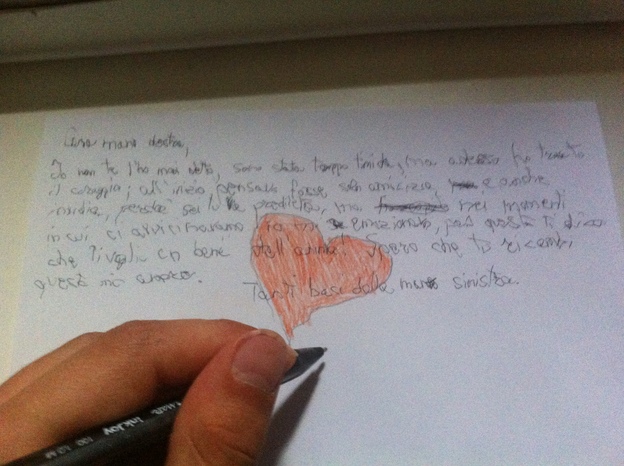 Cara mano destra,
Io non te l'ho mai detto, sono stata troppo timida, ma adesso ho trovato
il coraggio; all'inizio pensavo fosse solo amicizia, e anche
invidia, perché sei la prediletta, ma nei momenti
in cui ci avvicinavamo io ero emozionata, per questo ti dico
che ti voglio un bene dell'anima! Spero che tu ricambi
questo mio amore.
Tanti baci dalla mano sinistra.
inkjoy 100